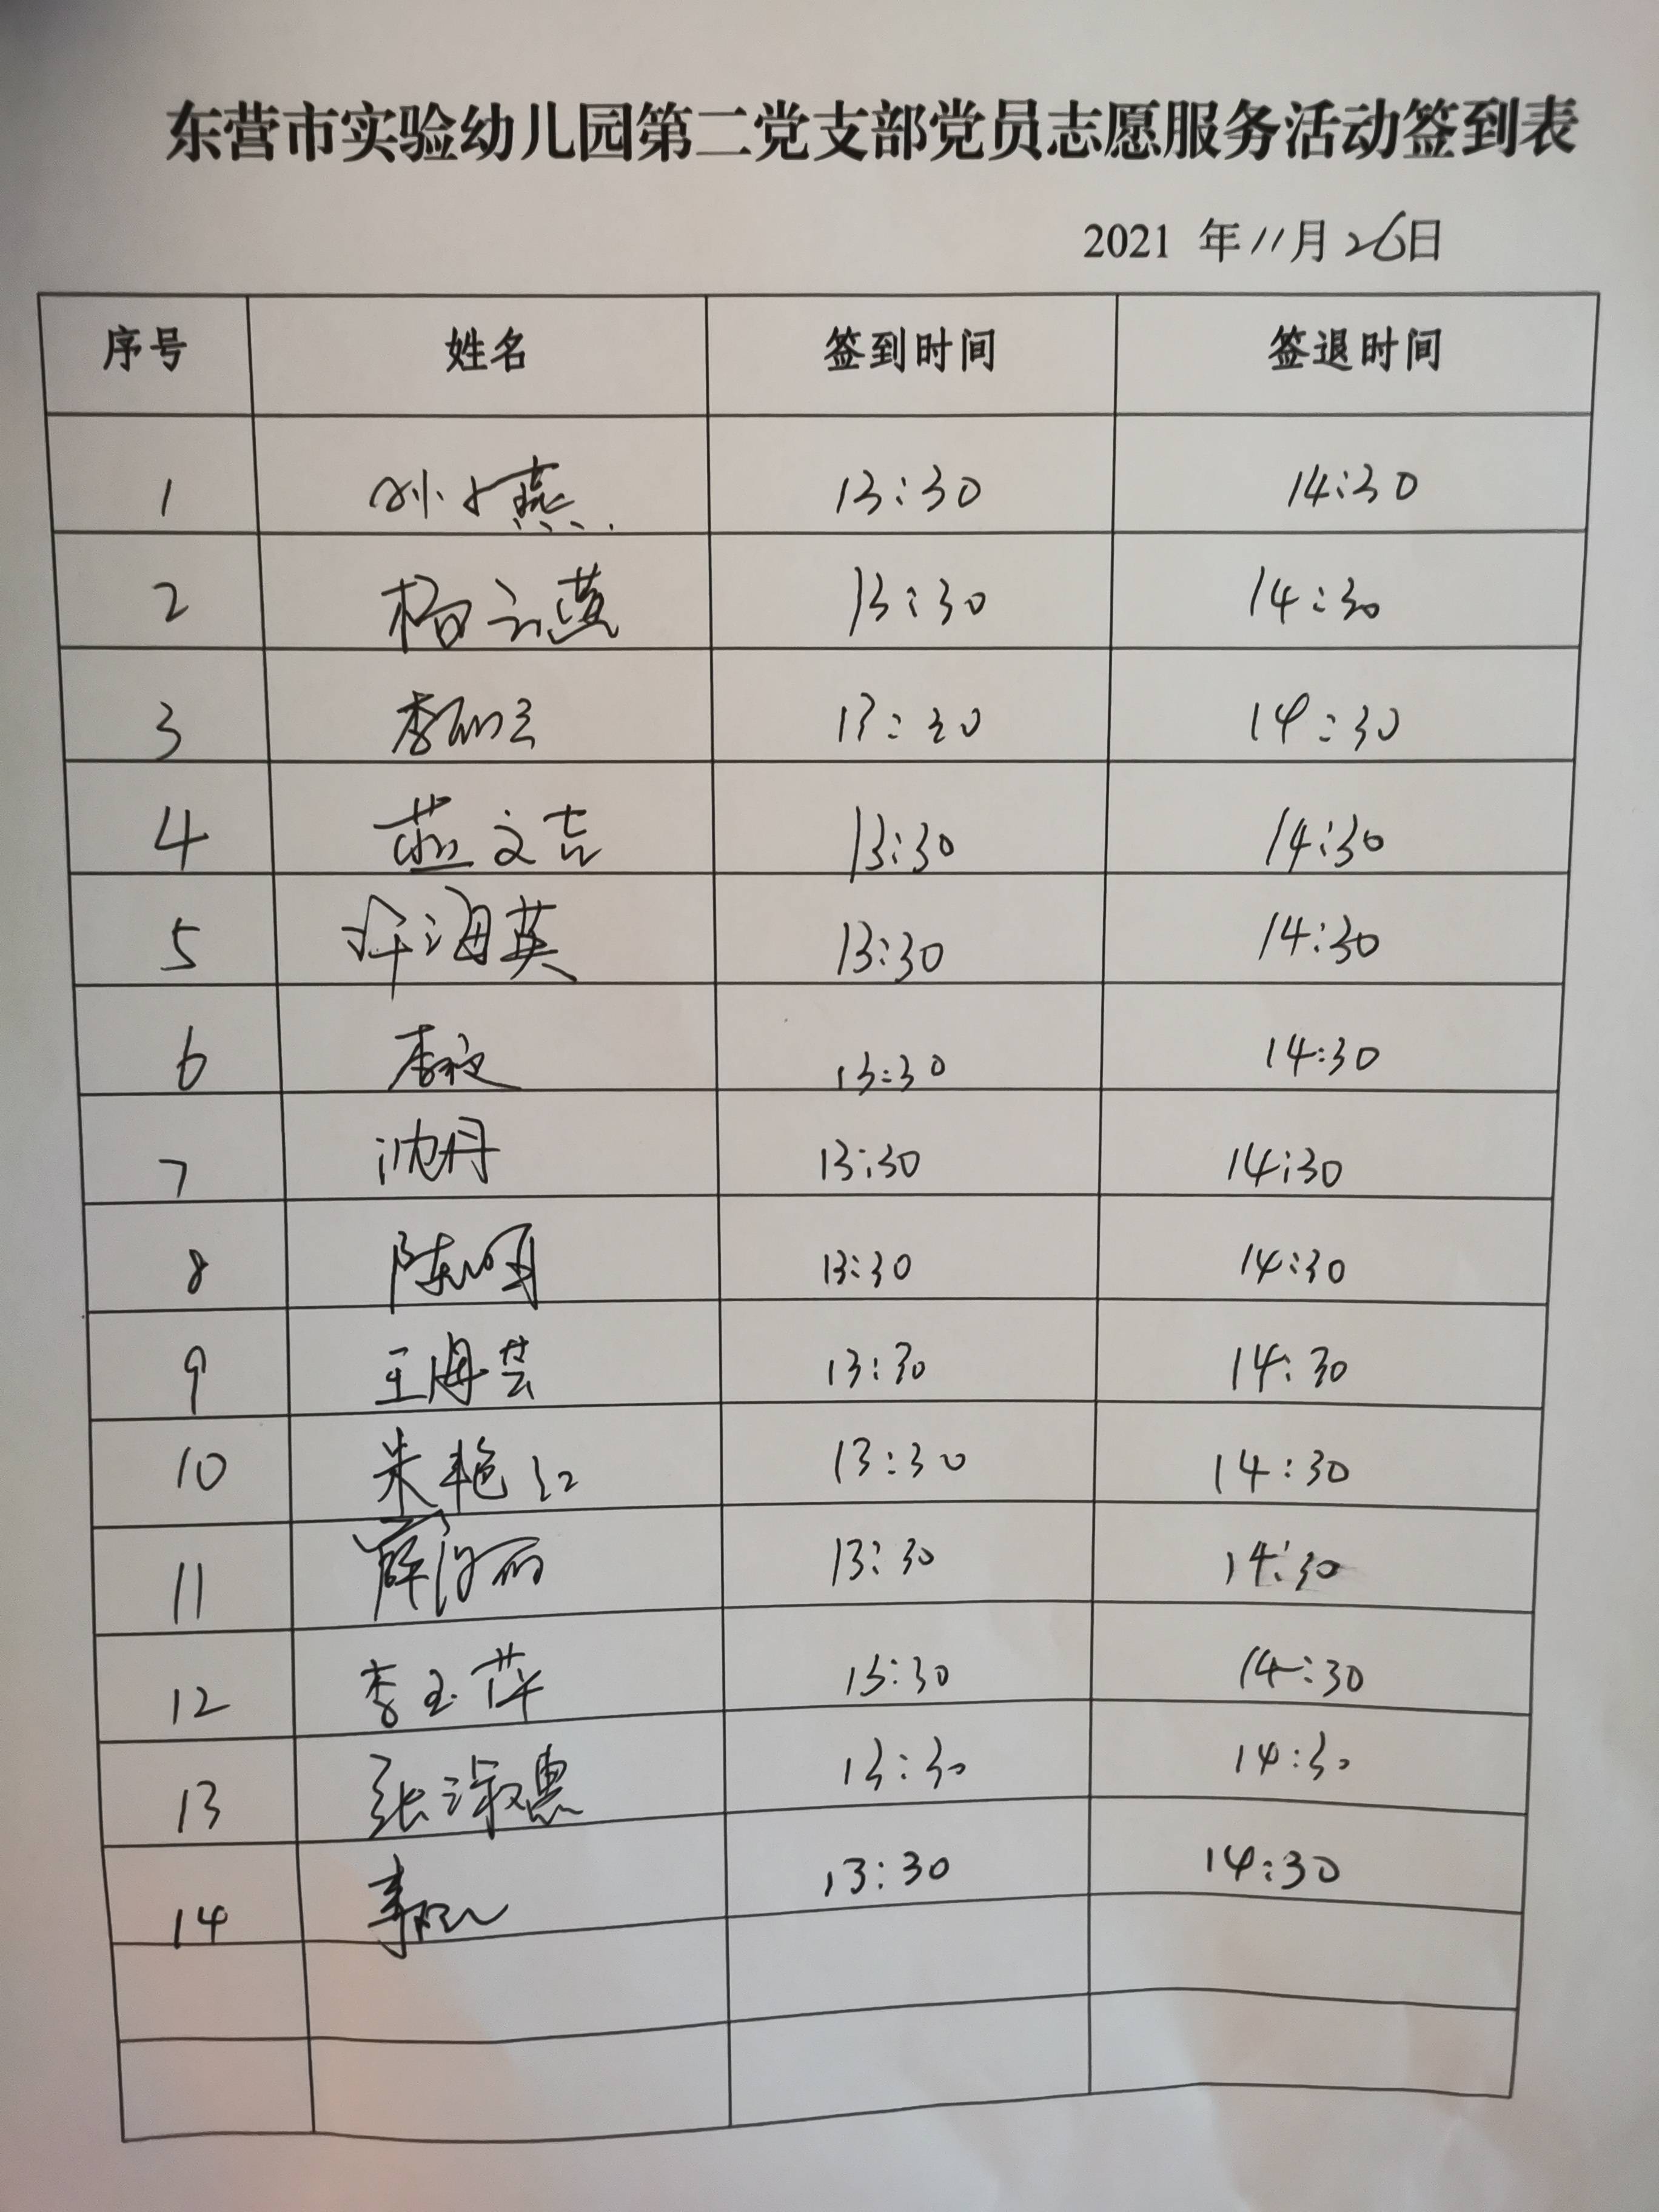 东营市实验幼儿园第二党支部党员志愿服务活动签到表
2021 年 11 月 26 日
序号 姓名 签到时间 签退时间
1 孙小燕 13:30 14:30
2 杨云燕 13:30 14:30
3 李 13:30 14:30
4 燕文吉 13:30 14:30
5 许海英 13:30 14:30
6 李 13:30 14:30
7 沈丹 13:30 14:30
8 陈 13:30 14:30
9 王海芸 13:30 14:30
10 朱艳红 13:30 14:30
11 薛 丽 13:30 14:30
12 李玉萍 13:30 14:30
13 张淑惠 13:30 14:30
14 13:30 14:30